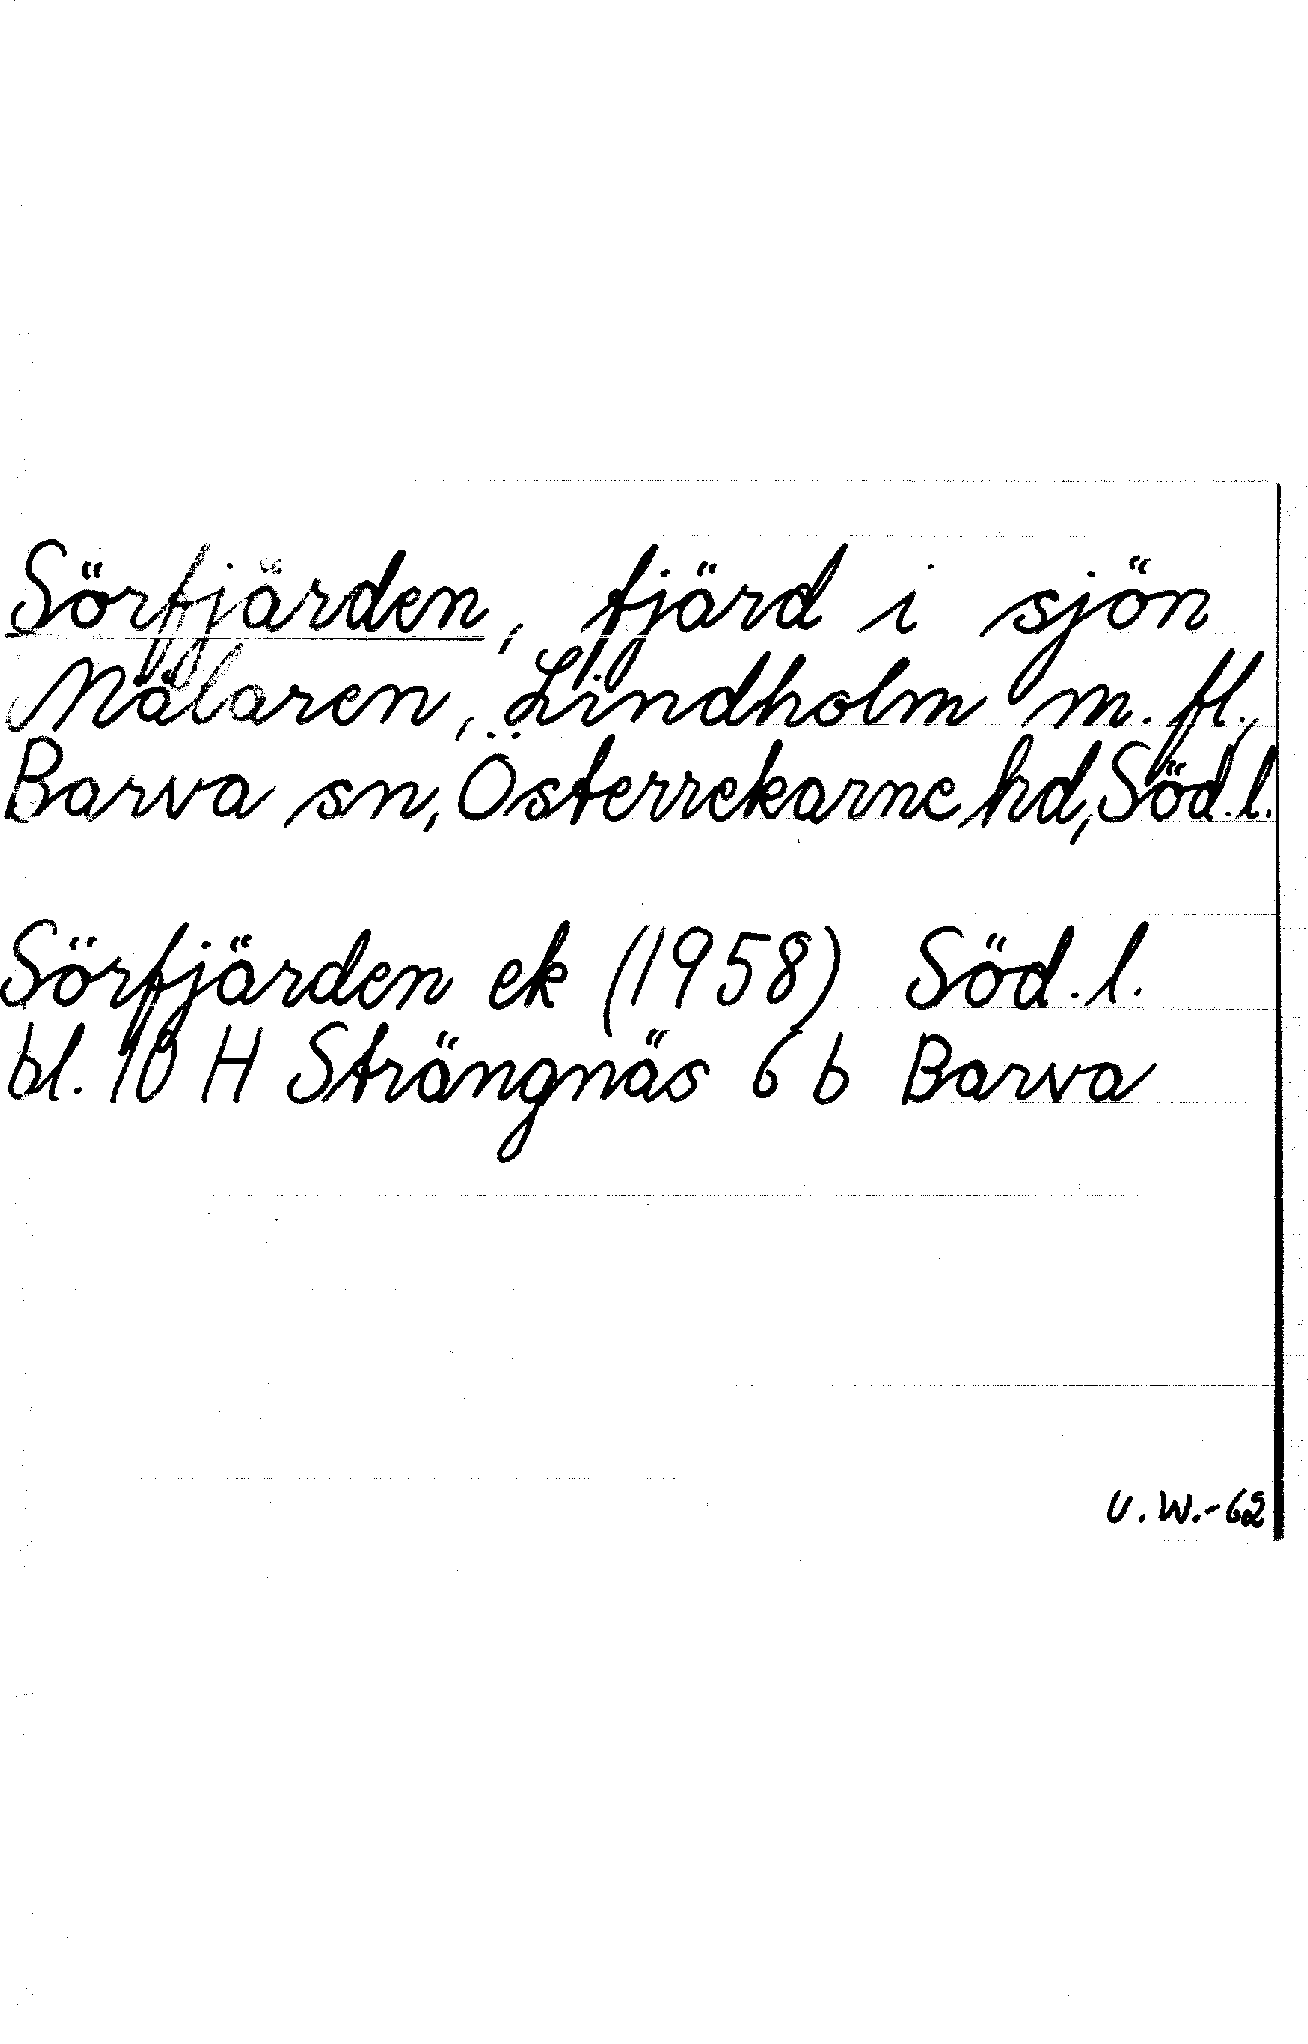 Sörfjärden, fjärd i sjön
Mälaren, Lindholm m. fl.,
Barva sn, Österrekarne hd, Söd. l.
Sörfjärden ek (1958) Söd. l.
bl. 10 H Strängnäs 6 b Barva
U. W. - 62